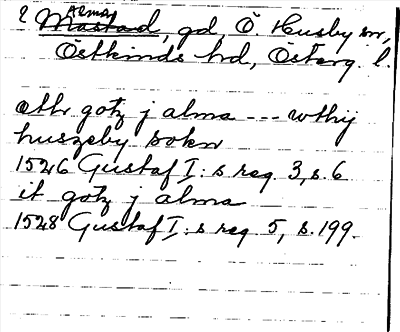 ? Alma
Mastad, gd, Ö. Husby sn,
Östkinds hd, Österg. l.
ath gotz j alma --- wthij
huszeby sokn
1526 Gustaf I:s reg. 3, s. 6
it gotz j alma
1528 Gustaf I:s reg 5, s. 199.